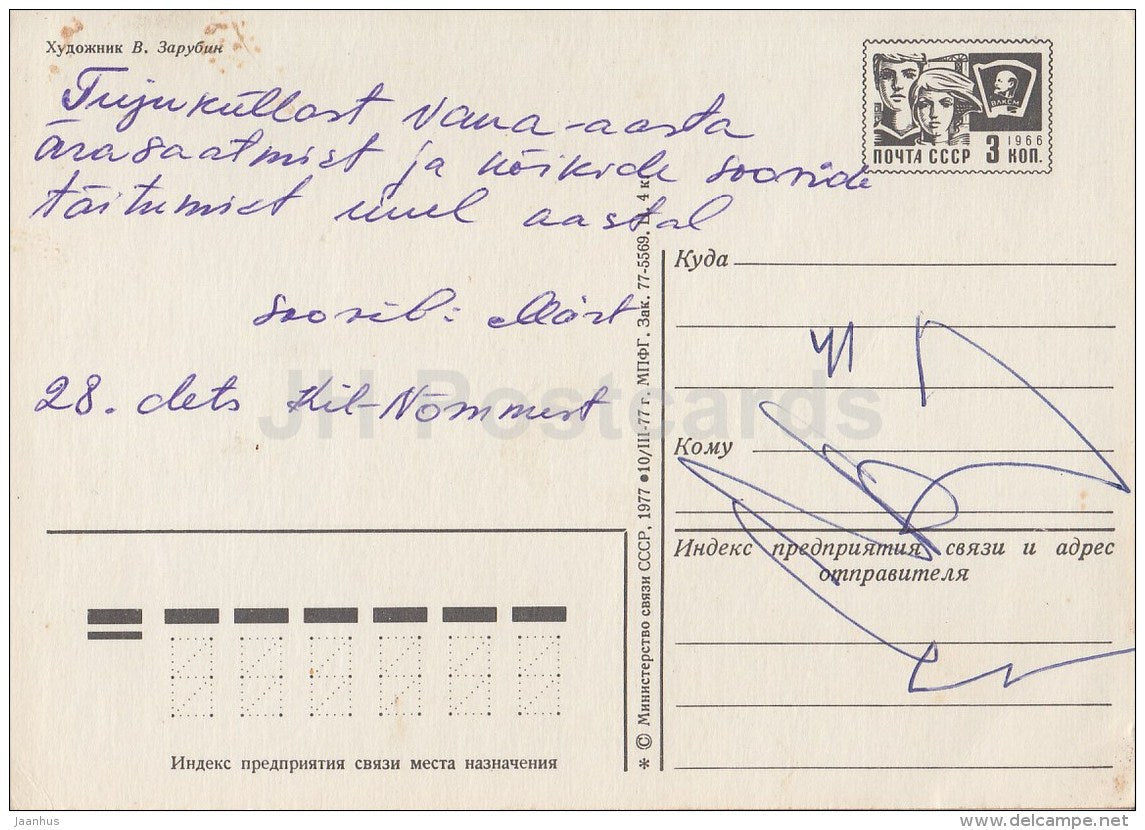 Художник В. Зарубин
Tujuküllast vana-aasta
ärasaatmist ja kõikide soovide
täitumist uuel aastal
soovib: Märt
28. dets Kil-Nõmmest
ВЛКСМ
1966
ПОЧТА СССР 3 КОП.
Куда
Кому
Индекс предприятия связи и адрес
отправителя
Индекс предприятия связи места назначения
* © Министерство связи СССР, 1977 ● 10/III-77 г. МПФГ. Зак. 77-5569. Ц. 4 к.
JH Postcards
Jaanhus
delcampe.net